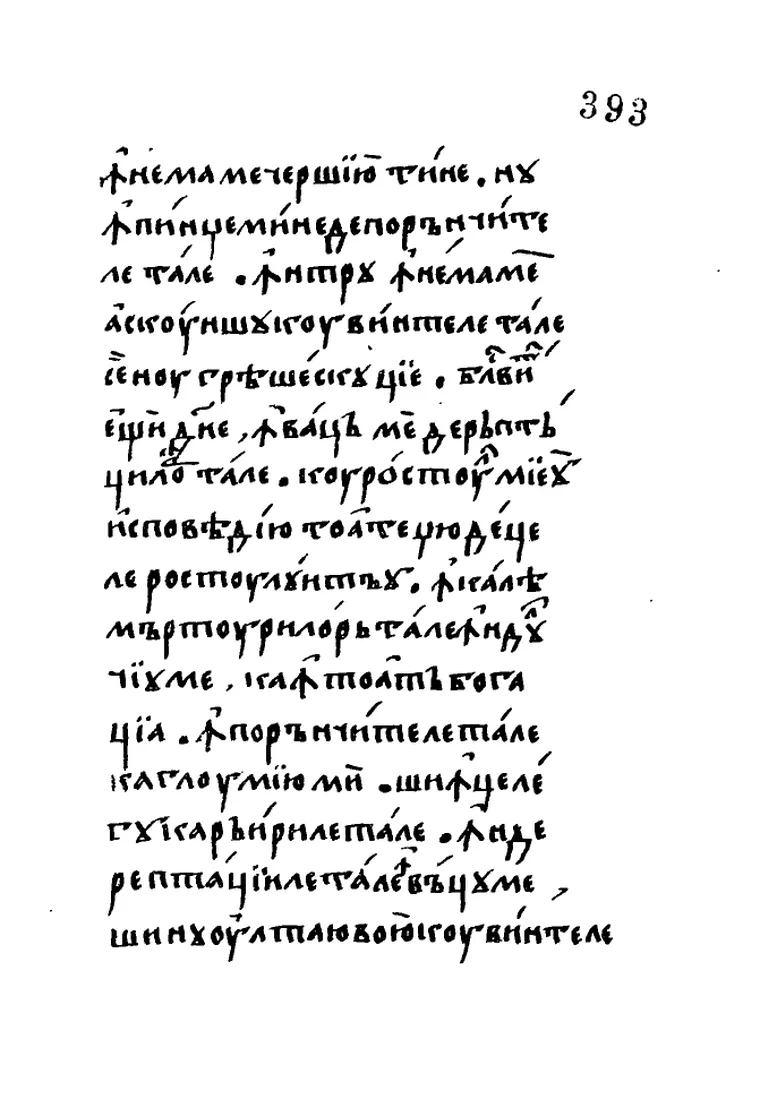 393
ꙟ҆немамечершїю҆ ти́не . нꙋ
ꙟ҆пи́нџемꙗ́недепорънчи́те
ле та́ле . ꙟ҆нтрꙋ ꙟ҆ни́мамѣ
аскоу́ншꙋкоуви́нтеле та́ле
се́ноу грѣше́скꙋ цїе . бл҃ви́т
ещи дм҃не , ꙟ҆ва́цъ ме дерѣптъ́
циле тале . коу ро́стоул мїеꙋ
и҆споведі́ю тоа҆те џюде́це
ле ростоулꙋи тъꙋ . ꙟ҆ка́лѣ
мъртоурїилорь та́ле ꙟ҆ндꙋл
чїꙋме , каꙟ҆ тоа҆тъ бога
цїа . ꙟ҆поръ нчи́теле та́ле
кагло умїю ми . шиꙟ҆целе́
гꙋ кърѣ́риле та́ле . ꙟ҆нде
рептацїиле та́ле ꙟ҆въцꙋме ,
ши нꙋ оу҆лтаювою коуви́нтеле